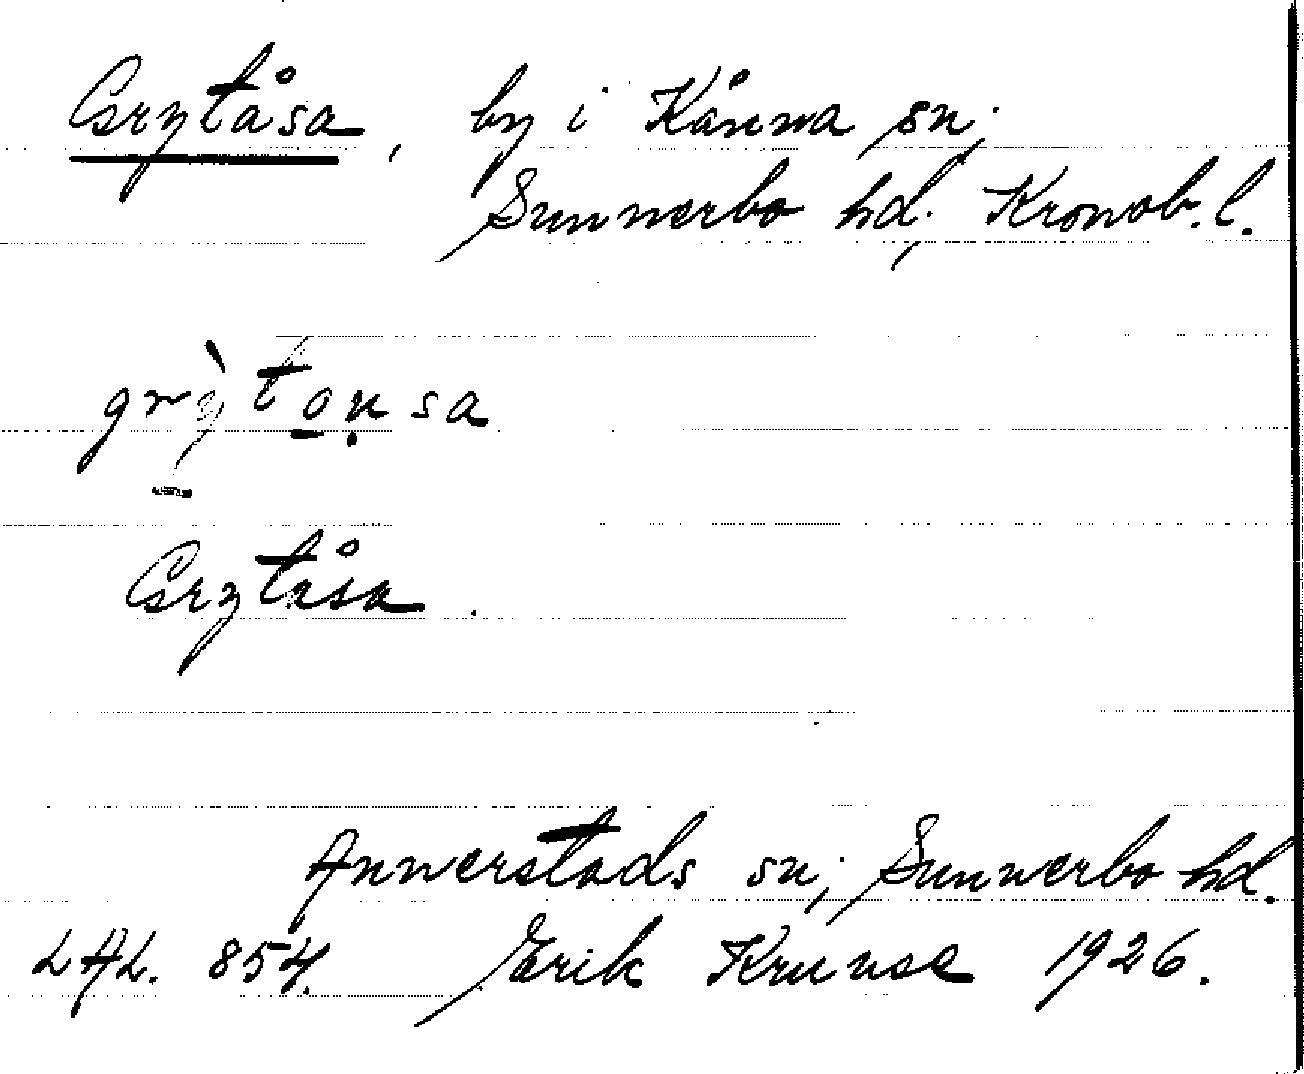 Grytåsa, by i Kånna sn;
Sunnerbo hd, Kronob. l.
grỳto̱ṇsa
Grytåsa.
Annerstads sn; Sunnerbo hd.
LAL. 854. Erik Kruuse 1926.